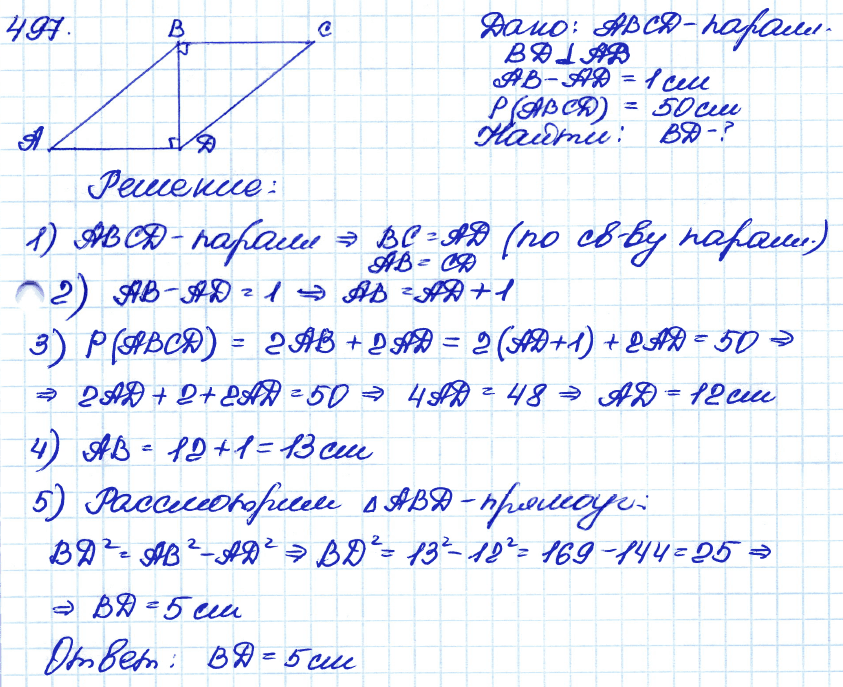 497.
B C
A D
Дано: ABCD-паралл.
BD⊥AD
AB-AD = 1 см
P(ABCD) = 50 см
Найти: BD-?
Решение:
1) ABCD-паралл ⇒ BC = AD (по св-ву паралл.)
AB = CD
2) AB-AD = 1 ⇒ AB = AD + 1
3) P(ABCD) = 2AB + 2AD = 2(AD+1) + 2AD = 50 ⇒
⇒ 2AD + 2 + 2AD = 50 ⇒ 4AD = 48 ⇒ AD = 12 см
4) AB = 12 + 1 = 13 см
5) Рассмотрим △ABD-прямоуг.:
BD² = AB² - AD² ⇒ BD² = 13² - 12² = 169 - 144 = 25 ⇒
⇒ BD = 5 см
Ответ: BD = 5 см